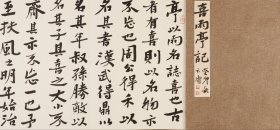 喜雨亭記
亭以雨名誌喜也古
者有喜則以名物示
不忘也周公得禾以
名其書漢武得鼎以
名其年叔孫勝敵以
名其子其喜之大小不
齊其示不忘一也予
至扶風之明年始治